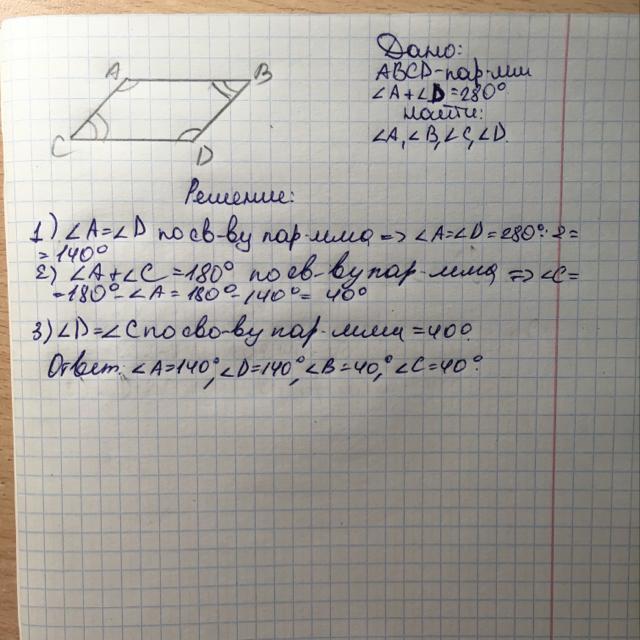 A
B
C
D
Дано:
ABCD-пар-мм
∠A+∠D=280°
Найти:
∠A,∠B,∠C,∠D.
Решение:
1) ∠A=∠D по св-ву пар-мма => ∠A=∠D=280°:2=
=140°
2) ∠A+∠C=180° по св-ву пар-мма => ∠C=
=180°-∠A=180°-140°=40°
3) ∠D=∠C по сво-ву пар-мма =40°.
Ответ: ∠A=140°,∠D=140°,∠B=40,°∠C=40°.